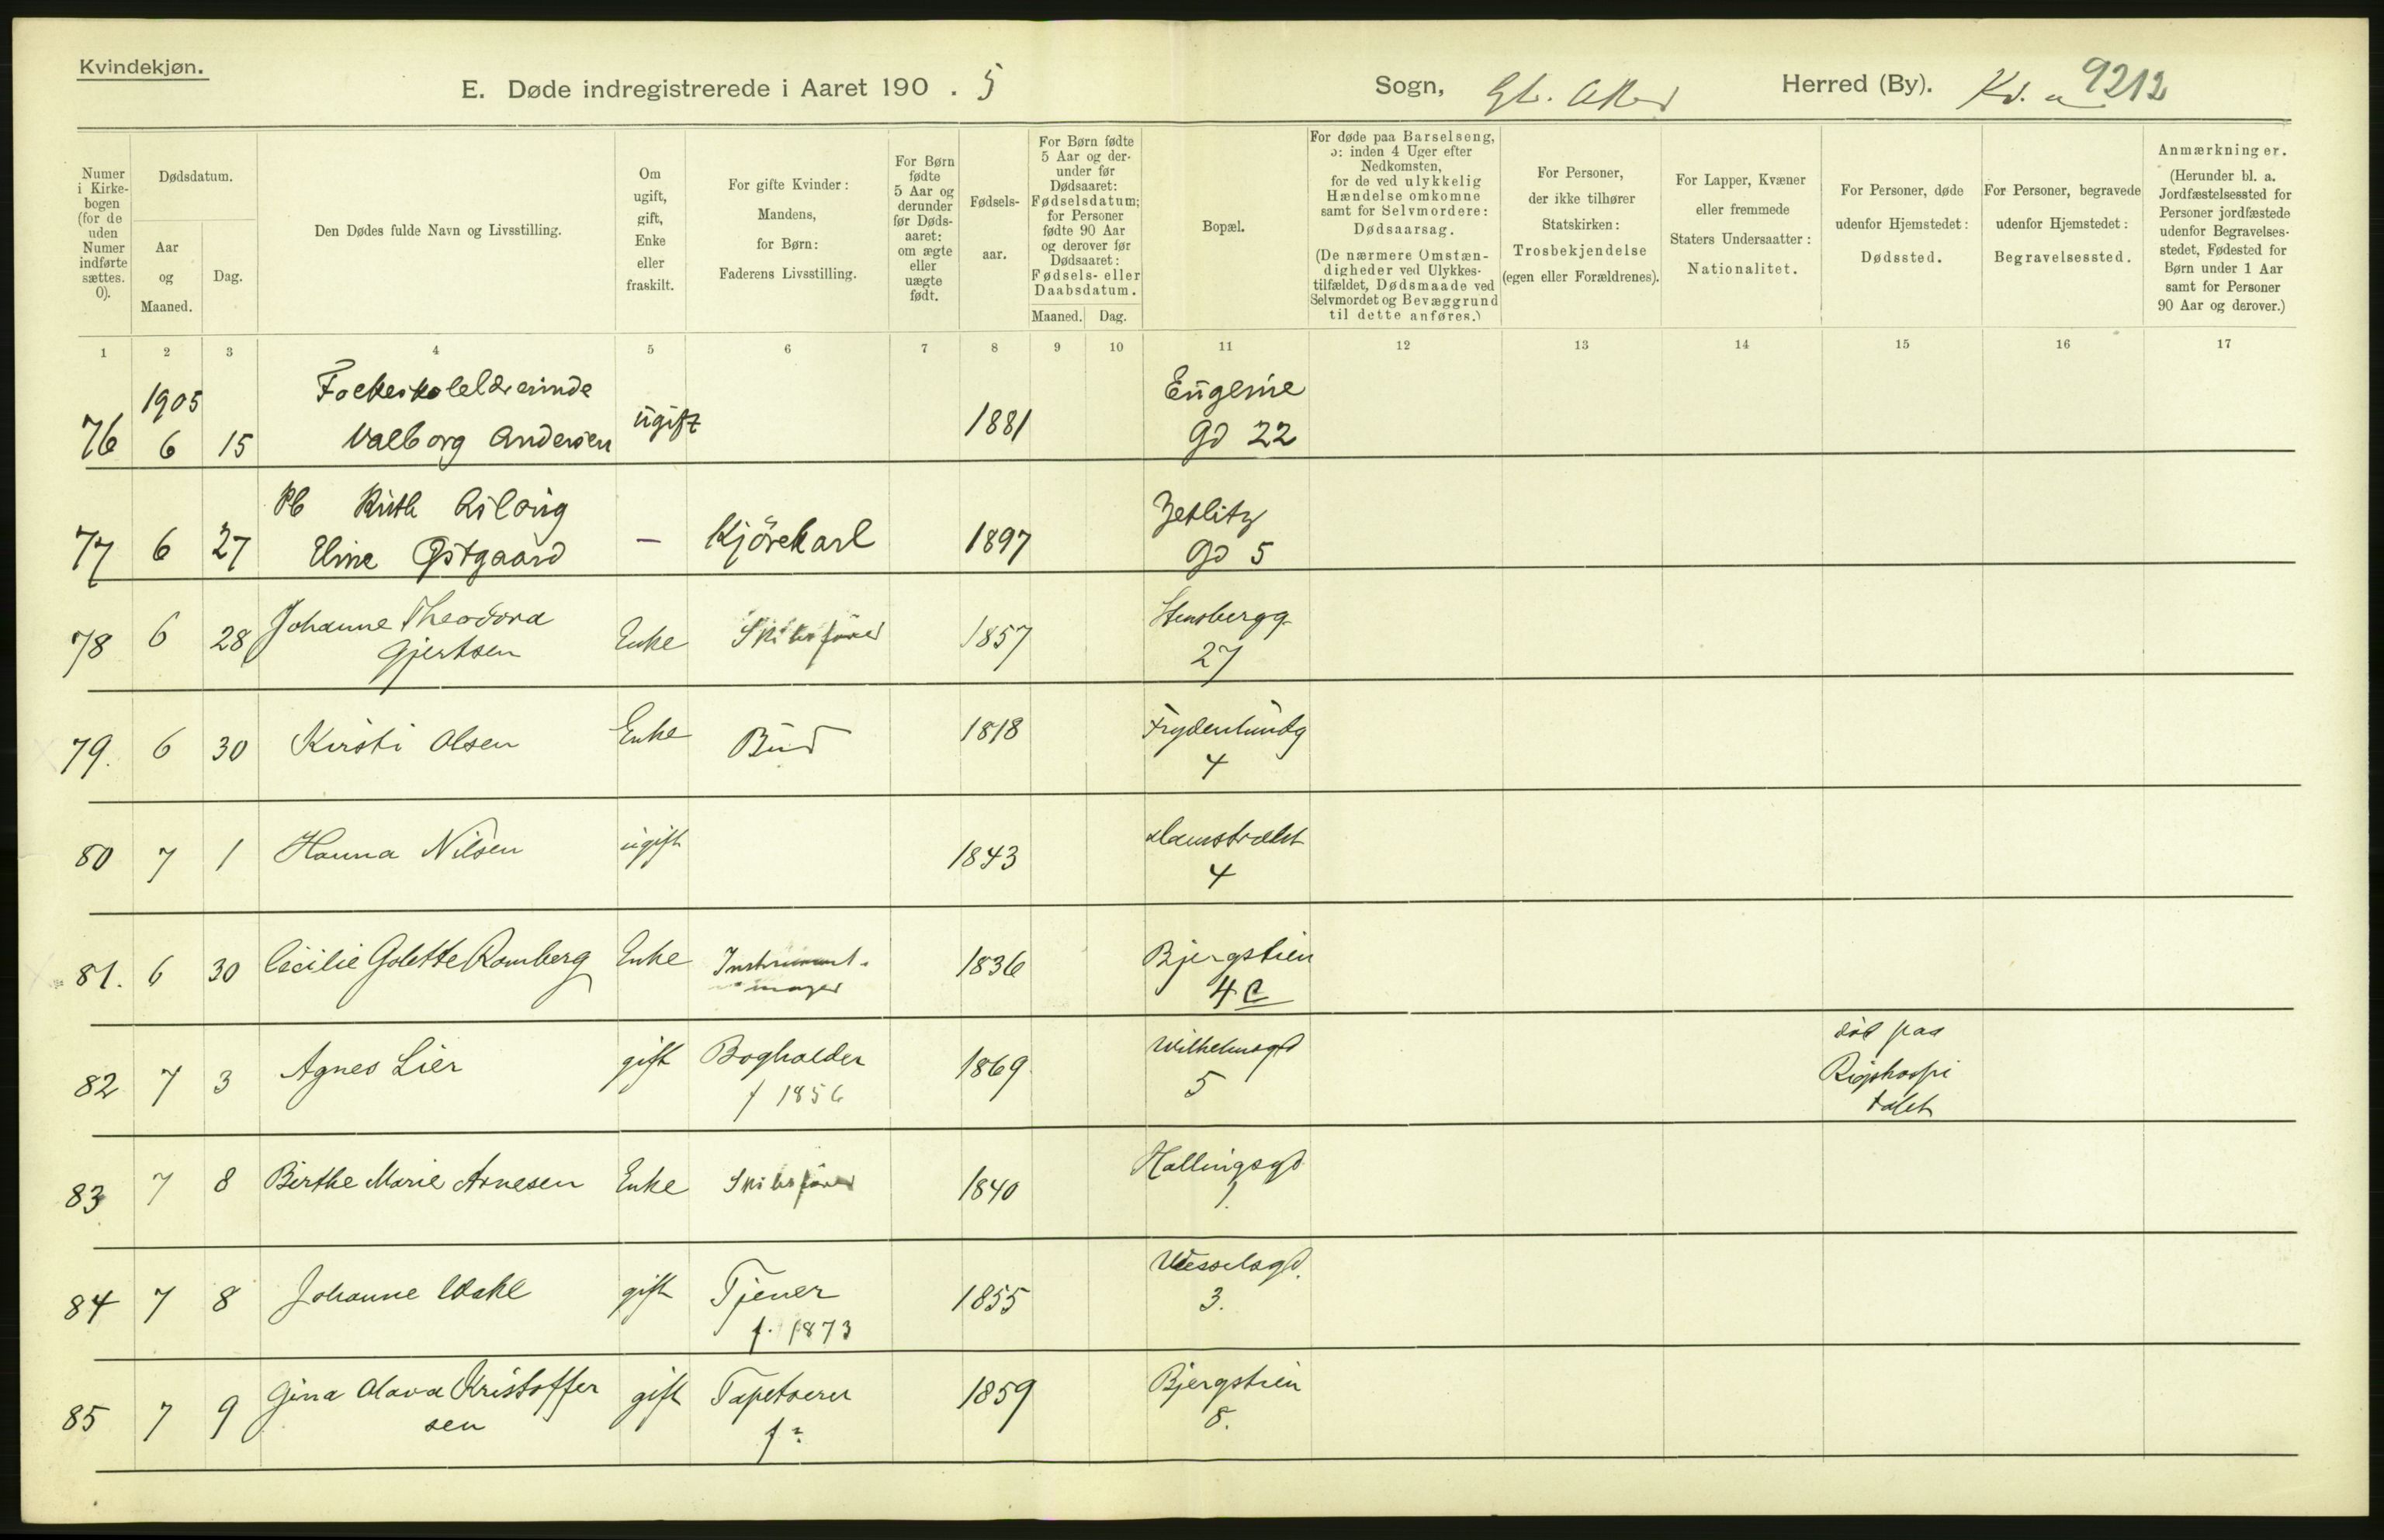 Kvindekjøn.
E. Døde indregistrerede i Aaret 190 . 5 Sogn, Gl. Aker Herred (By). Kr. a 9212
Numer i Kirkebogen (for de uden Numer indførte sættes. 0).
Dødsdatum.
Aar og Maaned.
Dag.
Den Dødes fulde Navn og Livsstilling.
Om ugift, gift, Enke eller fraskilt.
For gifte Kvinder: Mandens, for Børn: Faderens Livsstilling.
For Børn fødte 5 Aar og derunder før Dødsaaret: om ægte eller uægte født.
Fødselsaar.
For Børn fødte 5 Aar og derunder før Dødsaaret: Fødselsdatum; for Personer fødte 90 Aar og derover før Dødsaaret: Fødsels- eller Daabsdatum.
Maaned. Dag.
Bopæl.
For døde paa Barselseng, ɔ: inden 4 Uger efter Nedkomsten, for de ved ulykkelig Hændelse omkomne samt for Selvmordere: Dødsaarsag.
(De nærmere Omstændigheder ved Ulykkestilfældet, Dødsmaade ved Selvmordet og Bevæggrund til dette anføres.)
For Personer, der ikke tilhører Statskirken: Trosbekjendelse (egen eller Forældrenes).
For Lapper, Kvæner eller fremmede Staters Undersaatter: Nationalitet.
For Personer, døde udenfor Hjemstedet: Dødssted.
For Personer, begravede udenfor Hjemstedet: Begravelsessted.
Anmærkninger.
(Herunder bl. a. Jordfæstelsessted for Personer jordfæstede udenfor Begravelsesstedet, Fødested for Børn under 1 Aar samt for Personer 90 Aar og derover.)
1 2 3 4 5 6 7 8 9 10 11 12 13 14 15 16 17
1905 Folkeskolelærerinde Eugenie
76 6 15 Valborg Andersen ugift 1881 Gd 22
Pb Ruth Aslaug Zetlitz
77 6 27 Eline Østgaard — Kjörekarl 1897 Gd 5
78 6 28 Johanne Theodora Enke Skibsfører 1857 Stensbergg.
Gjertsen 27
79. 6 30 Kirsti Olsen Enke Bud 1818 Frydenlundg
4
80 7 1 Hanna Nilsen ugift 1843 Damstrædet
4
81. 6 30 Cecilie Golette Romberg Enke Instrument- 1836 Bjergstien
mager 4 c
82 7 3 Agnes Lier gift Bogholder 1869 Wilhelmsgd død paa
f 1856 5 Rigshospi
talet
83 7 8 Birthe Marie Arnesen Enke Skibsfører 1840 Hallingsgd
1.
84 7 8 Johanne Wahl gift Tjener 1855 Wesselsgd.
f. 1873 3.
85 7 9 Gina Olava Kristoffer gift Tapetserer 1859 Bjergstien
sen f ? 8.